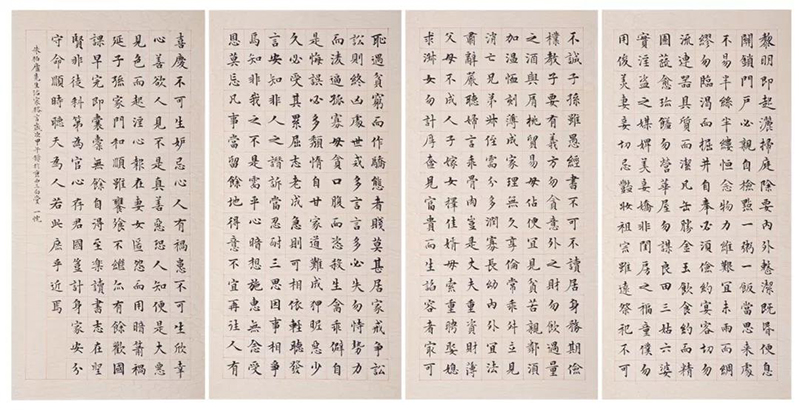 黎明即起灑掃庭除要內外整潔既昬便息
關鎖門戶必親自檢點一粥一飯當思來處
不易半絲半縷恒念物力維艱宜未雨而綢
繆勿臨渴而掘井自奉必須儉約宴客切勿
流連器具質而潔瓦缶勝金玉飲食約而精
園蔬愈珍饈勿營華屋勿謀良田三姑六婆
實淫盜之媒婢美妾嬌非閨房之福童僕勿
用俊美妻妾切忌豔妝祖宗雖遠祭祀不可
不誠子孫雖愚經書不可不讀居身務期儉
樸教子要有義方勿貪意外之財勿飲過量
之酒與肩挑貿易毋佔便宜見貧苦親鄰須
加溫恤刻薄成家理無久享倫常乖舛立見
消亡兄弟叔侄需分多潤寡長幼內外宜法
肅辭嚴聽婦言乖骨肉豈是丈夫重資財薄
父母不成人子嫁女擇佳婿毋索重聘娶媳
求淑女勿計厚奩見富貴而生諂容者最可
恥遇貧窮而作驕態者賤莫甚居家戒爭訟
訟則終凶處世戒多言言多必失勿恃勢力
而凌逼孤寡毋貪口腹而恣殺生禽乖僻自
是悔誤必多頹惰自甘家道難成狎昵惡少
久必受其累屈志老成急則可相依輕聽發
言安知非人之譖訴當忍耐三思因事相爭
焉知非我之不是需平心暗想施惠無念受
恩莫忘凡事當留餘地得意不宜再往人有
喜慶不可生妒忌心人有禍患不可生欣幸
心善欲人見不是真善惡恐人知便是大惡
見色而起淫心報在妻女匿怨而用暗箭禍
延子孫家門和順雖饔飧不繼亦有餘歡國
課早完即囊橐無餘自得至樂讀書志在聖
賢非徒科第為官心存君國豈計身家安分
守命順時聽天為人若此庶乎近焉
朱柏廬先生治家格言歲次甲午錄於三白堂一悅